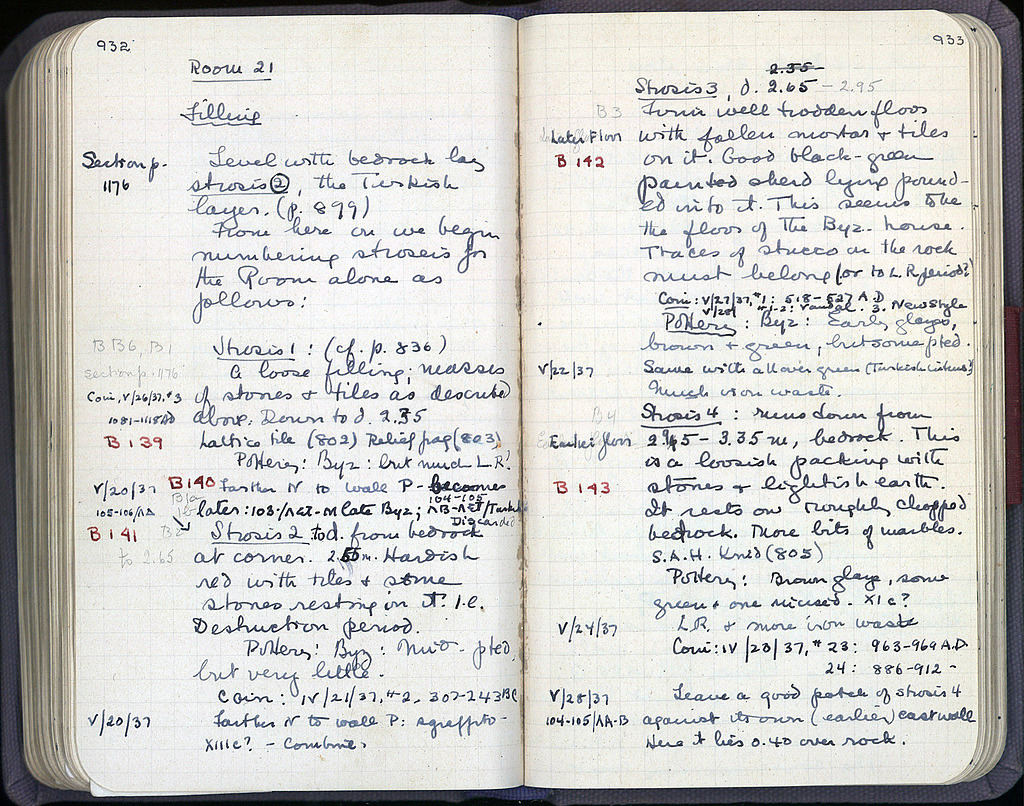 932
Room 21
Filling
Section p. 1176
Level with bedrock lay
strosis ②, the Turkish
layer. (p. 899)
From here on we begin
numbering stroseis for
the Room alone as
follows:
B B6, B1
section p. 1176
Strosis 1: (cf. p. 836)
A loose filling; masses
Coin, V/26/37, #3
of stones & tiles as described
1081-1118 AD
above. Down to d. 2.35
B 139
Lattice tile (802) Relief frag (803)
Pottery: Byz: but much L.R!
V/20/37
B 140
Farther N to wall P - becomes
104-105
105-106/ΛΔ
later: 103-/ΛΣΤ-Μ late Byz; ΛΒ-ΛΣΤ/Turkish
Discarded
B 141
B2
to 2.65
Strosis 2 to d. from bedrock
at corner. 2.65 m. Hardish
red with tiles & some
stones resting on it. I.e.
Destruction period.
Pottery: Byz: pted,
but very little.
Coin: IV/21/37, #2, 307-243 BC
V/20/37
Farther N to wall P: sgraffito-
XIII c? - Combine.
933
2.35
Strosis 3, d. 2.65 - 2.95
B3
Firm well trodden floor
Later Floor
with fallen mortar & tiles
B 142
on it. Good black-green
painted sherd lying pound-
ed into it. This seems to be
the floor of the Byz. house.
Traces of stucco on the rock
must belong (or to L.R. period?)
Coin: V/27/37, #1: 518-527 A.D
V/28/ #1-2: Vandal. 3. New Style
Pottery: Byz: Early glazes,
brown & green, but some pted.
V/22/37
Same with all over green (Turkish?)
Much iron waste.
B4
Strosis 4: runs down from
Earlier floor
2.95 - 3.35 m, bedrock. This
is a loosish packing with
B 143
stones & lightish earth.
It rests on roughly chopped
bedrock. More bits of marbles.
S.A.H. Knid (805)
Pottery: Brown glaze, some
green & one incised. XI c?
V/24/37
L.R. & more iron waste
Coin: IV/23/37, #23: 963-969 A.D.
24: 886-912 -
V/28/37
Leave a good patch of strosis 4
104-105/ΛΑ-Β
against its own (earlier) east wall
Here it lies 0.40 over rock.